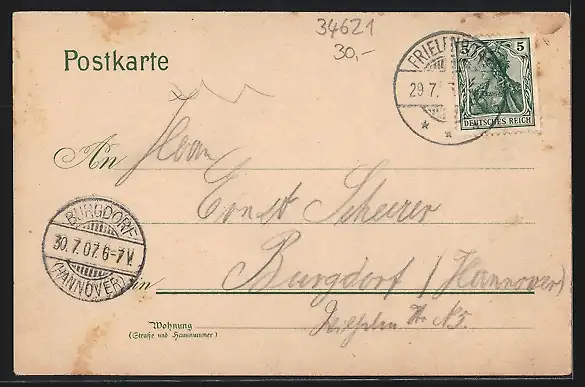 34621
30,-
Postkarte
5
DEUTSCHES REICH
29.7.
An Herrn
Ernst Scheerer
BURGDORF
30.7.07.6-7V
(HANNOVER)
in Burgdorf / (Hannover)
Wilhelm Str. N 5.
Wohnung
(Straße und Hausnummer)